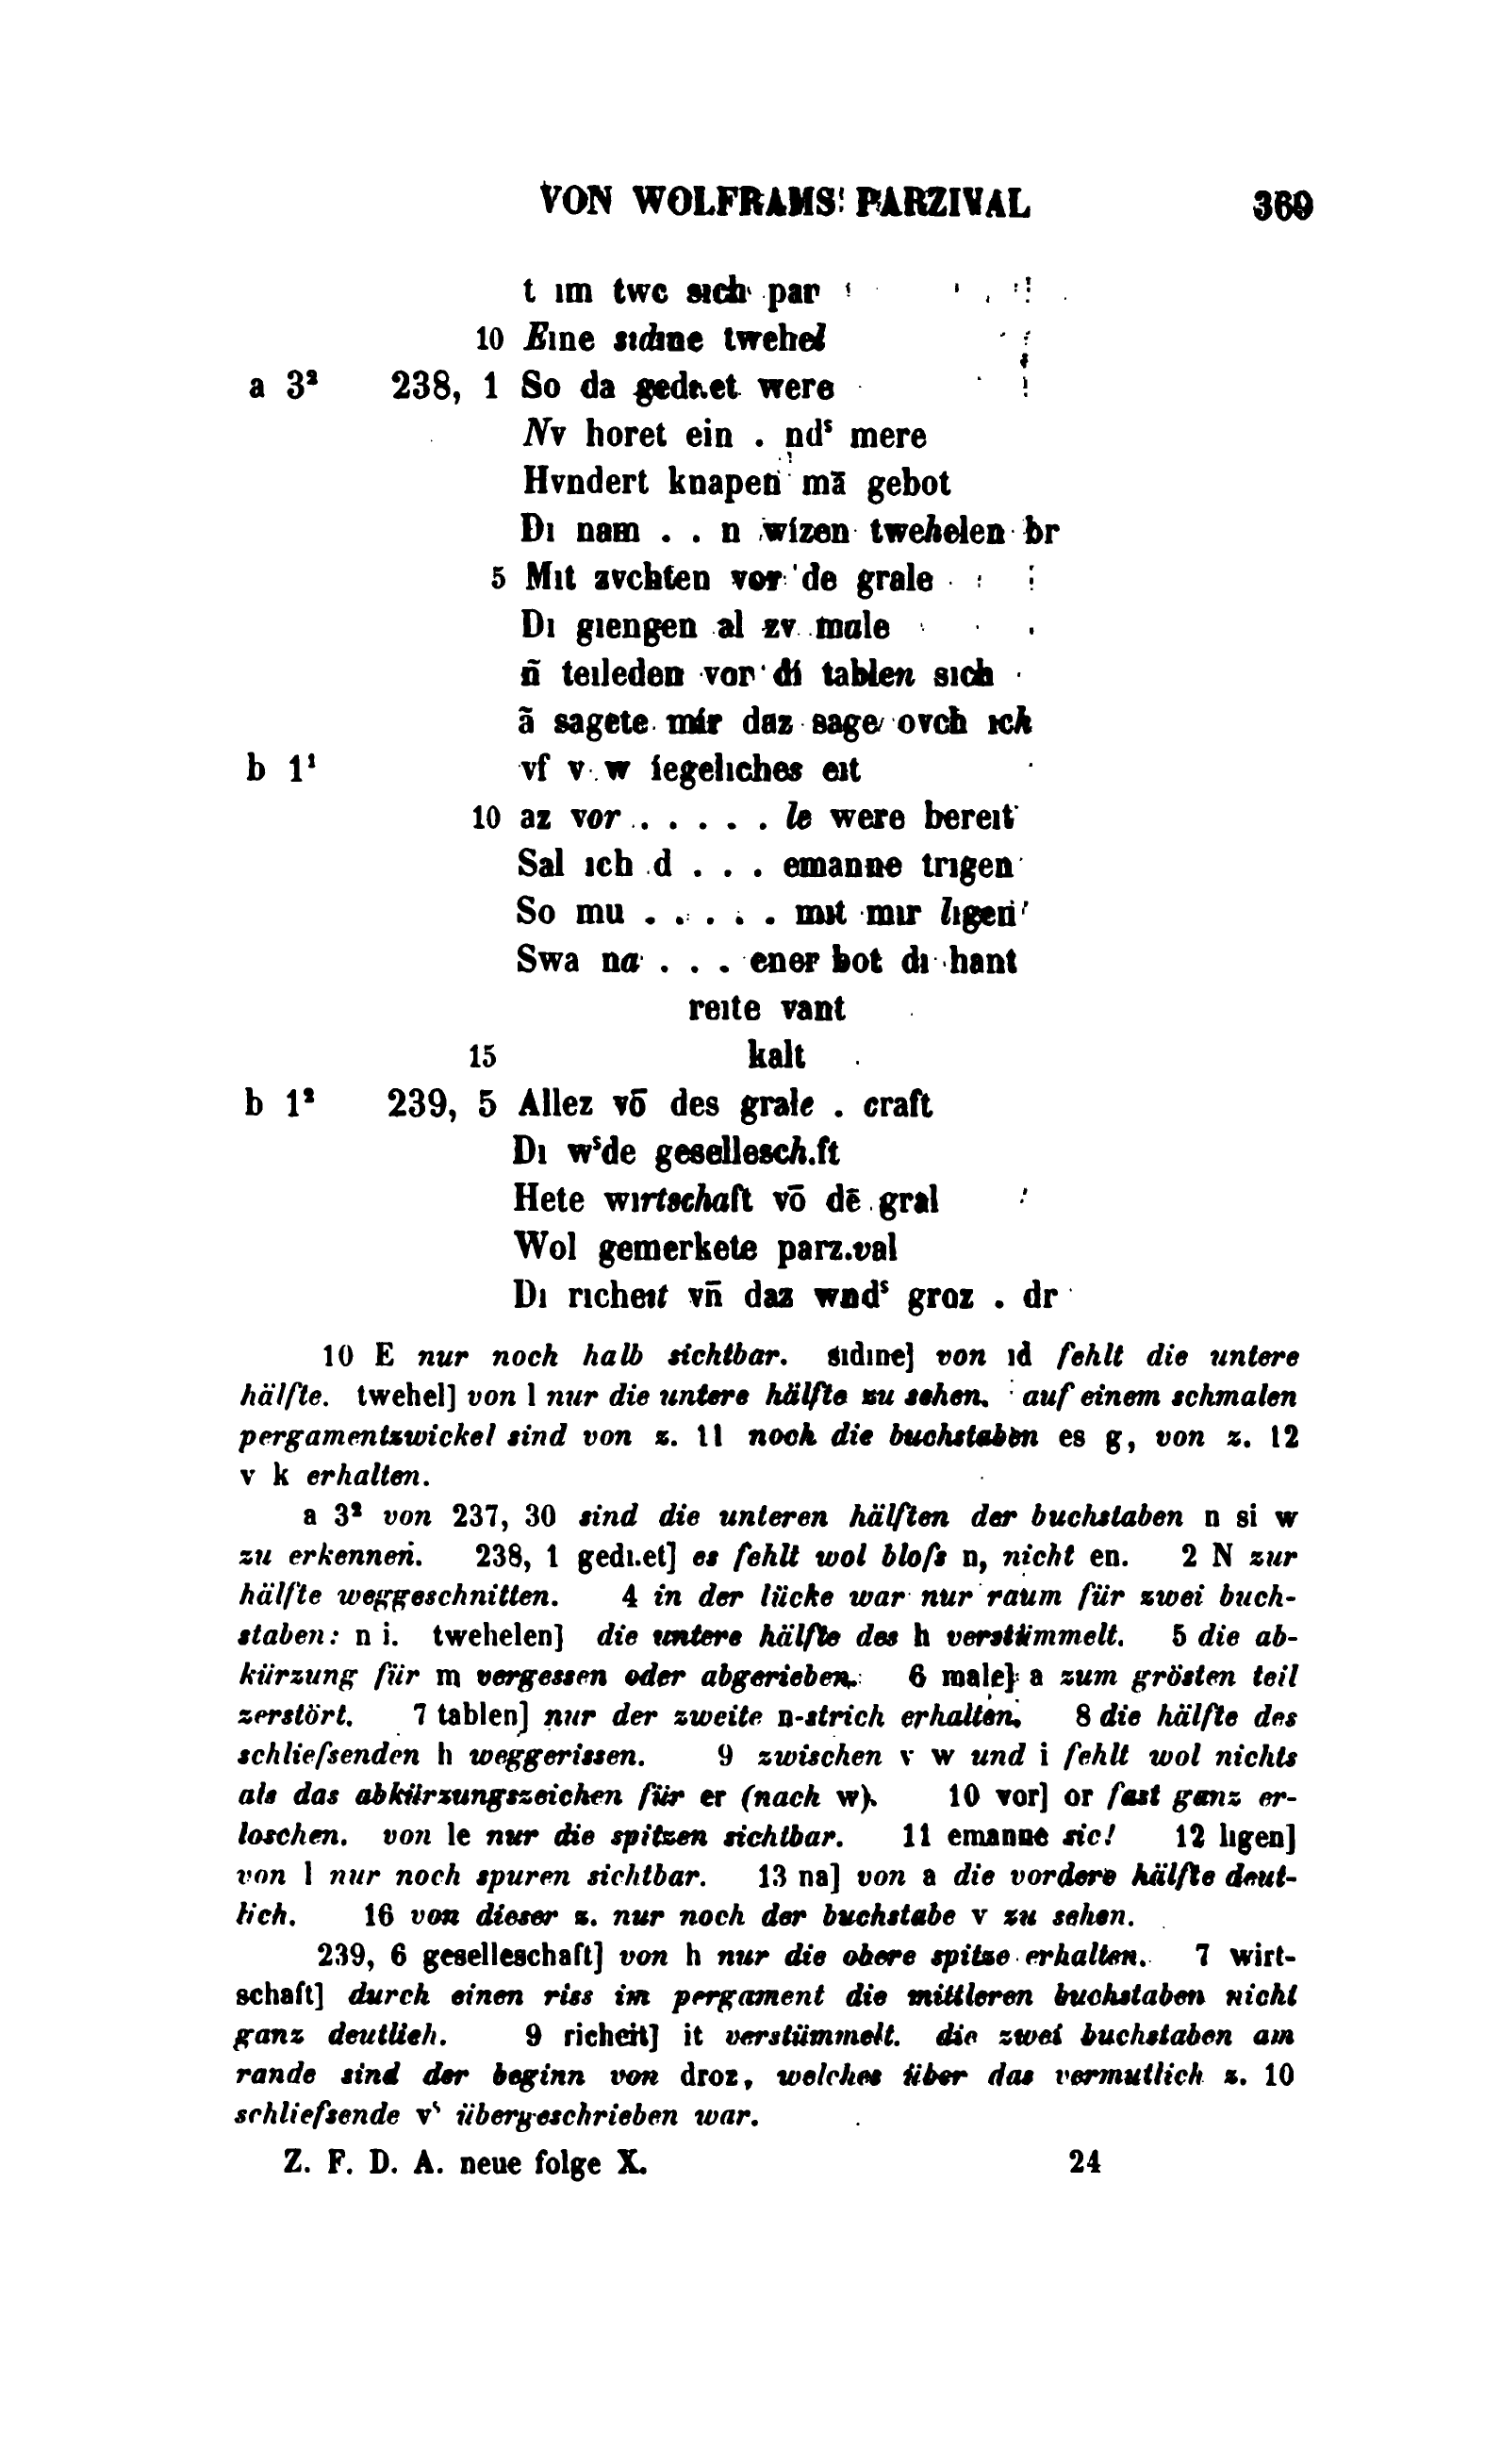 VON WOLFRAMS PARZIVAL 369
t ım twc sıch par
10 Eıne sıdıne twehel
a 3² 238, 1 So da gedı.et were
Nv horet ein . ndˢ mere
Hvndert knapen mā gebot
Dı nam . . n wizen twehelen br
5 Mıt zvchten vor de grale
Dı gıengen al zv male
n̄ teıleden vor di tablen sıch
ā sagete mir daz sage ovch ıch
b 1¹ vf v w iegelıches eıt
10 az vor . . . . . le were bereıt
Sal ıch d . . . emanne trıgen
So mu . . . . . mıt mır lıgen
Swa na . . . ener bot dı hant
reıte vant
15 kalt
b 1² 239, 5 Allez vō des grale . craft
Dı wˢde gesellesch.ft
Hete wırtschaft vō dē gral
Wol gemerkete parz.val
Dı rıcheıt vn̄ daz wndˢ groz . dr
10 E nur noch halb sichtbar. sıdıne] von ıd fehlt die untere
hälfte. twehel] von l nur die untere hälfte zu sehen. auf einem schmalen
pergamentzwickel sind von z. 11 noch die buchstaben es g, von z. 12
v k erhalten.
a 3² von 237, 30 sind die unteren hälften der buchstaben n si w
zu erkennen. 238, 1 gedı.et] es fehlt wol bloſs n, nicht en. 2 N zur
hälfte weggeschnitten. 4 in der lücke war nur raum für zwei buch-
staben: n i. twehelen] die untere hälfte des h verstümmelt. 5 die ab-
kürzung für m vergessen oder abgerieben. 6 male] a zum grösten teil
zerstört. 7 tablen] nur der zweite n-strich erhalten. 8 die hälfte des
schlieſsenden h weggerissen. 9 zwischen v w und i fehlt wol nichts
als das abkürzungszeichen für er (nach w). 10 vor] or fast ganz er-
loschen. von le nur die spitzen sichtbar. 11 emanne sic! 12 lıgen]
von l nur noch spuren sichtbar. 13 na] von a die vordere hälfte deut-
lich. 16 von dieser z. nur noch der buchstabe v zu sehen.
239, 6 geselleschaft] von h nur die obere spitze erhalten. 7 wirt-
schaft] durch einen riss im pergament die mittleren buchstaben nicht
ganz deutlich. 9 richeit] it verstümmelt. die zwei buchstaben am
rande sind der beginn von droz, welches über das vermutlich z. 10
schlieſsende vˢ übergeschrieben war.
Z. F. D. A. neue folge X. 24